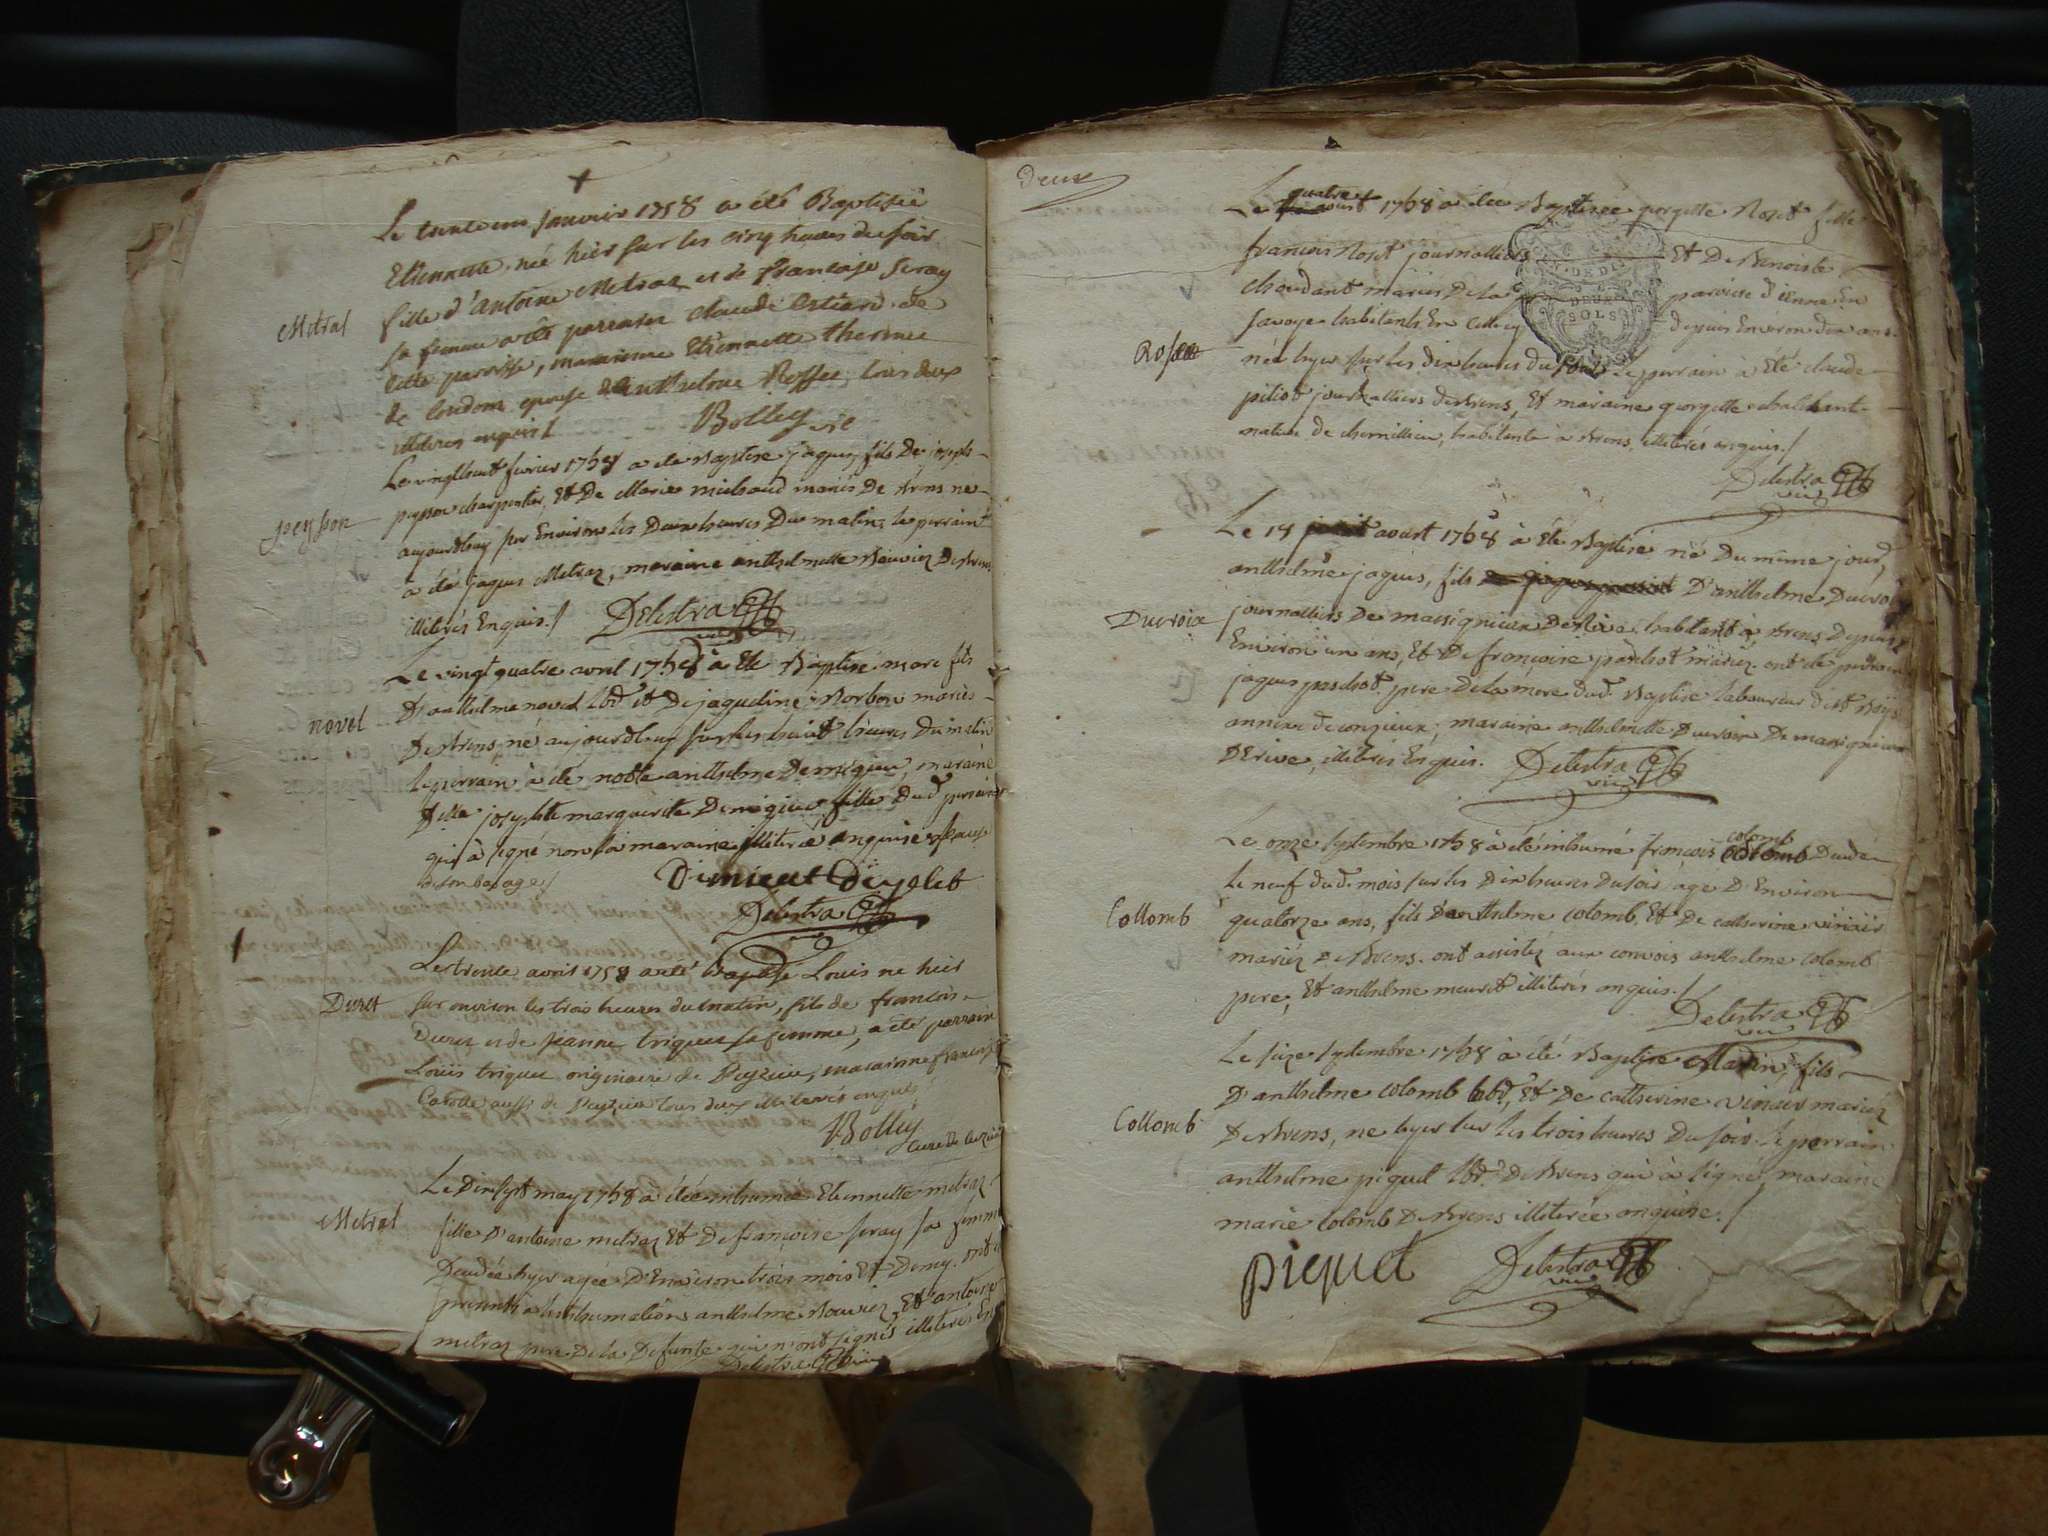 Le trente un janvier 1758 a été Baptisée
Etiennette née hier sur les cinq heures du soir
Metral
fille d'antoine Metraz et de Françoise Seray
sa femme a été parrain claude de
cette paroisse, marraine Etiennette
de épouse tous deux
illiteres enquis
Bolley vic
Le vingthuit fevrier 1758 a été Baptisé jaques fils De joseph
peysson
peysson charpentier, Et De Marie michaud mariés De Brens né
aujourdhuy sur Environ les Deux heures Du matin; le perrain
à été jaques Metraz, maraine anthelmette Bouvier De Brens
illiterés Enquis./ Delestra vic
Le vingt quatre avril 1758 à Eté Baptisé marc fils
novel
D'anthelme novel lbr. et De jaqueline Borbon mariés
De Brens né aujourdhuy sur les huit heures Du matin
le perrain à été noble anthelme Demigieu, maraine
Dlle josephte marguerite Demigieu fille Dud. perrain
qui à signé non la maraine illiterée enquise
de son bas age/
Delestra vic
Le trente avril 1758 a eté baptisé Louis né hier
Duret
sur environ les trois heures du matin, fils de francois
Duret et de jeanne triquet sa femme, a été parrain
Louis triquet originaire de Peyzieu, maraine francoise
aussi de Peyzieu tous deux illiterés enquis
Bolley
curé de
Le Dixsept may 1758 à étée inhumée Etiennette metraz
Metral
fille D'antoine metraz Et De françoise seray sa femme
Decedée hyer agée D'Environ trois mois Et Demy. ont
presents a l'inhumation anthelme Bouvier, Et antoine
metraz pere De la Defunte qui n'ont signés illiterés En
Delestra vic
Deux
Le quatre aoust 1758 à étée Baptisée georgette Roset fille
francois Roset journallier Et De Benoiste
DEUX
SOLS
chaudant mariés De la paroisse d'ienne En
savoye habitants En depuis Environ dix ans
Roset
née hyer sur les dix heures du le perrain à été claude
pitiot journallier de Brens, Et maraine georgette
native de habitante à Brens, illiterés enquis./
Delestra vic
Le 14 aoust 1758 à été Baptisé né Du même jour,
anthelme jaques, fils D'anthelme Ducroix
Ducroix
journallier De massignieu De Rive habitant à Brens Depuis
Environ un ans, Et De françoise paschot mariez. ont été perrain
jaques paschot pere De la mere dud. Baptisé laboureur
annexe de conzieux; maraine anthelmette Ducroix De massignieux
De rive, illiterés Enquis. Delestra vic
Le onze septembre 1758 à été inhumé françois colomb Decedé
le neuf dud. mois sur les Dix heures Du soir, agé D'Environ
Collomb
quatorze ans, fils D'anthelme colomb, Et De catherine vinier
mariéz De Brens. ont assistez aux convois anthelme colomb
pere, Et anthelme meuret illiterés enquis./
Delestra vic
Le seize septembre 1758 à été Baptisé Marin, fils
D'anthelme colomb labr, Et De catherine vinier mariéz
Collomb
De Brens, né hyer sur les trois heures Du soir. le perrain
anthelme piquet lbr. De Brens qui à signé, maraine
marie colomb De Brens illiterée enquise./
piquet Delestra vic